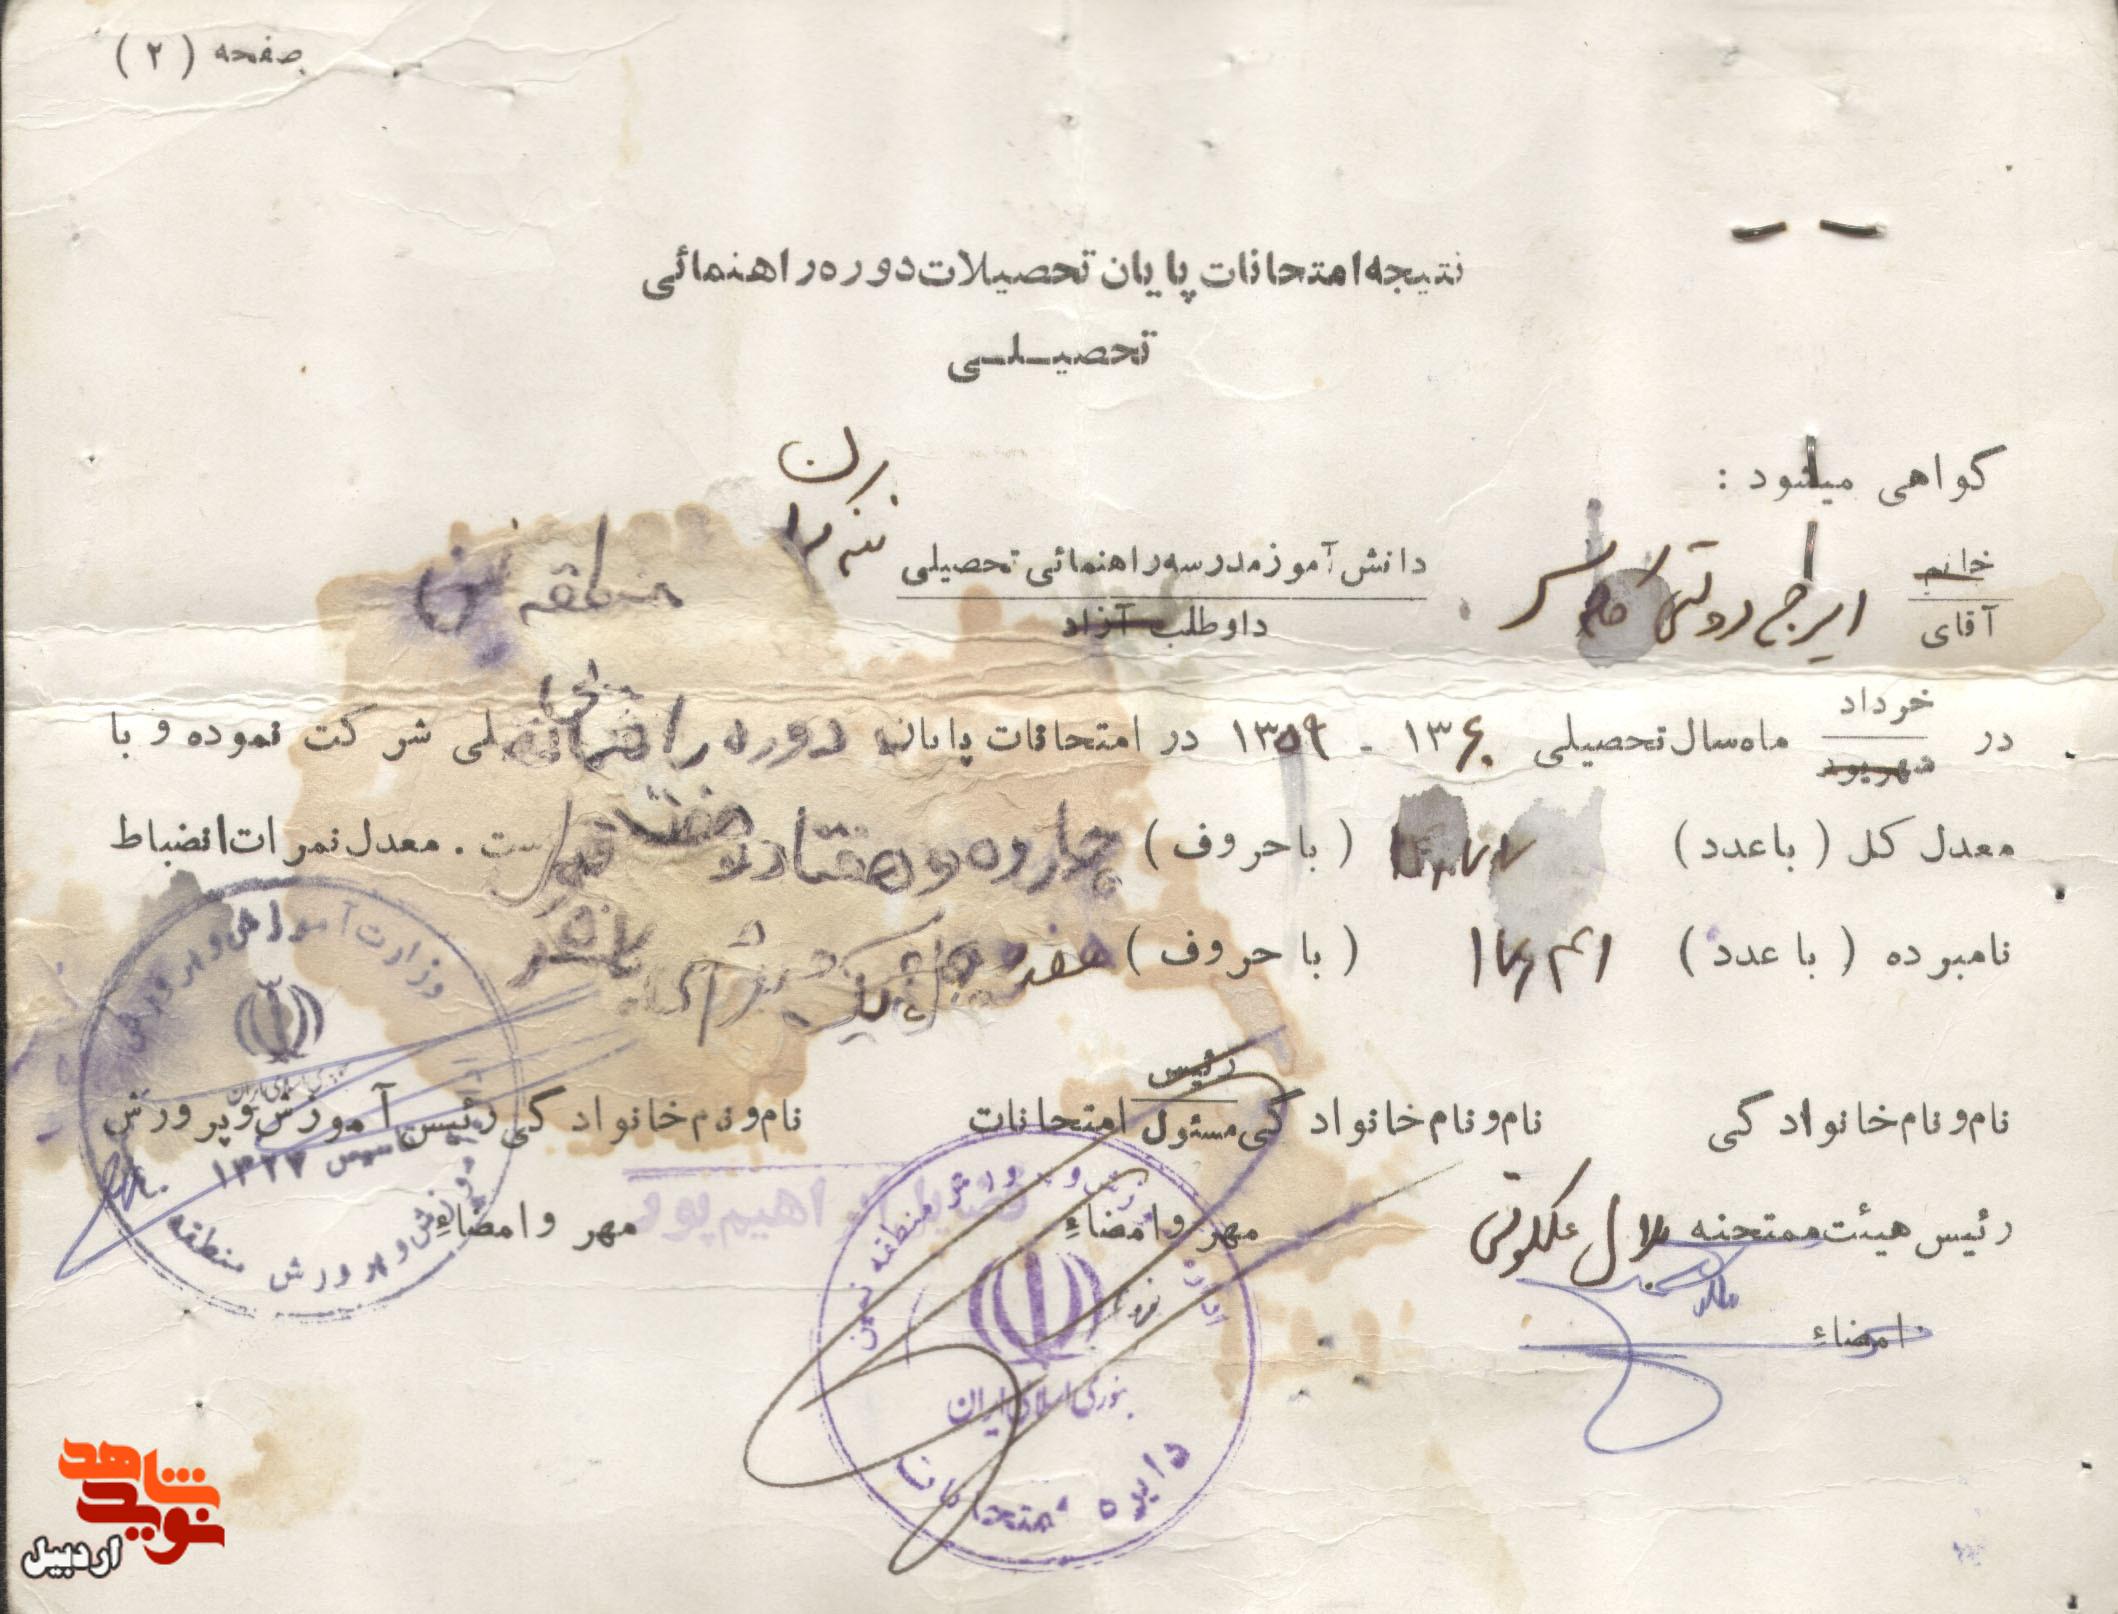 صفحه (۲)
نتیجه امتحانات پایان تحصیلات دوره راهنمائی
تحصیلی
گواهی میشود :
خانم
آقای ایرج
دانش آموز مدرسه راهنمائی تحصیلی
داوطلب آزاد
منطقه
در خرداد
شهریور
ماه سال تحصیلی ۱۳۶۰ - ۱۳۵۹ در امتحانات پایان دوره راهنمائی شرکت نموده و با
معدل کل (با عدد) ۱۴٫۷۷ (با حروف) چهارده و هفتاد و هفت است . معدل نمرات انضباط
نامبرده (با عدد) ۱۷٫۴۱ (با حروف) هفده
نام و نام خانوادگی
رئیس هیئت ممتحنه
امضاء
نام و نام خانوادگی رئیس
مسئول امتحانات
مهر و امضاء
نام و نام خانوادگی رئیس آموزش و پرورش
مهر و امضاء
وزارت آموزش و پرورش
تاسیس ۱۳۲۷
آموزش و پرورش منطقه
جمهوری اسلامی ایران
دایره امتحانات
شاهد
نوید
اردبیل